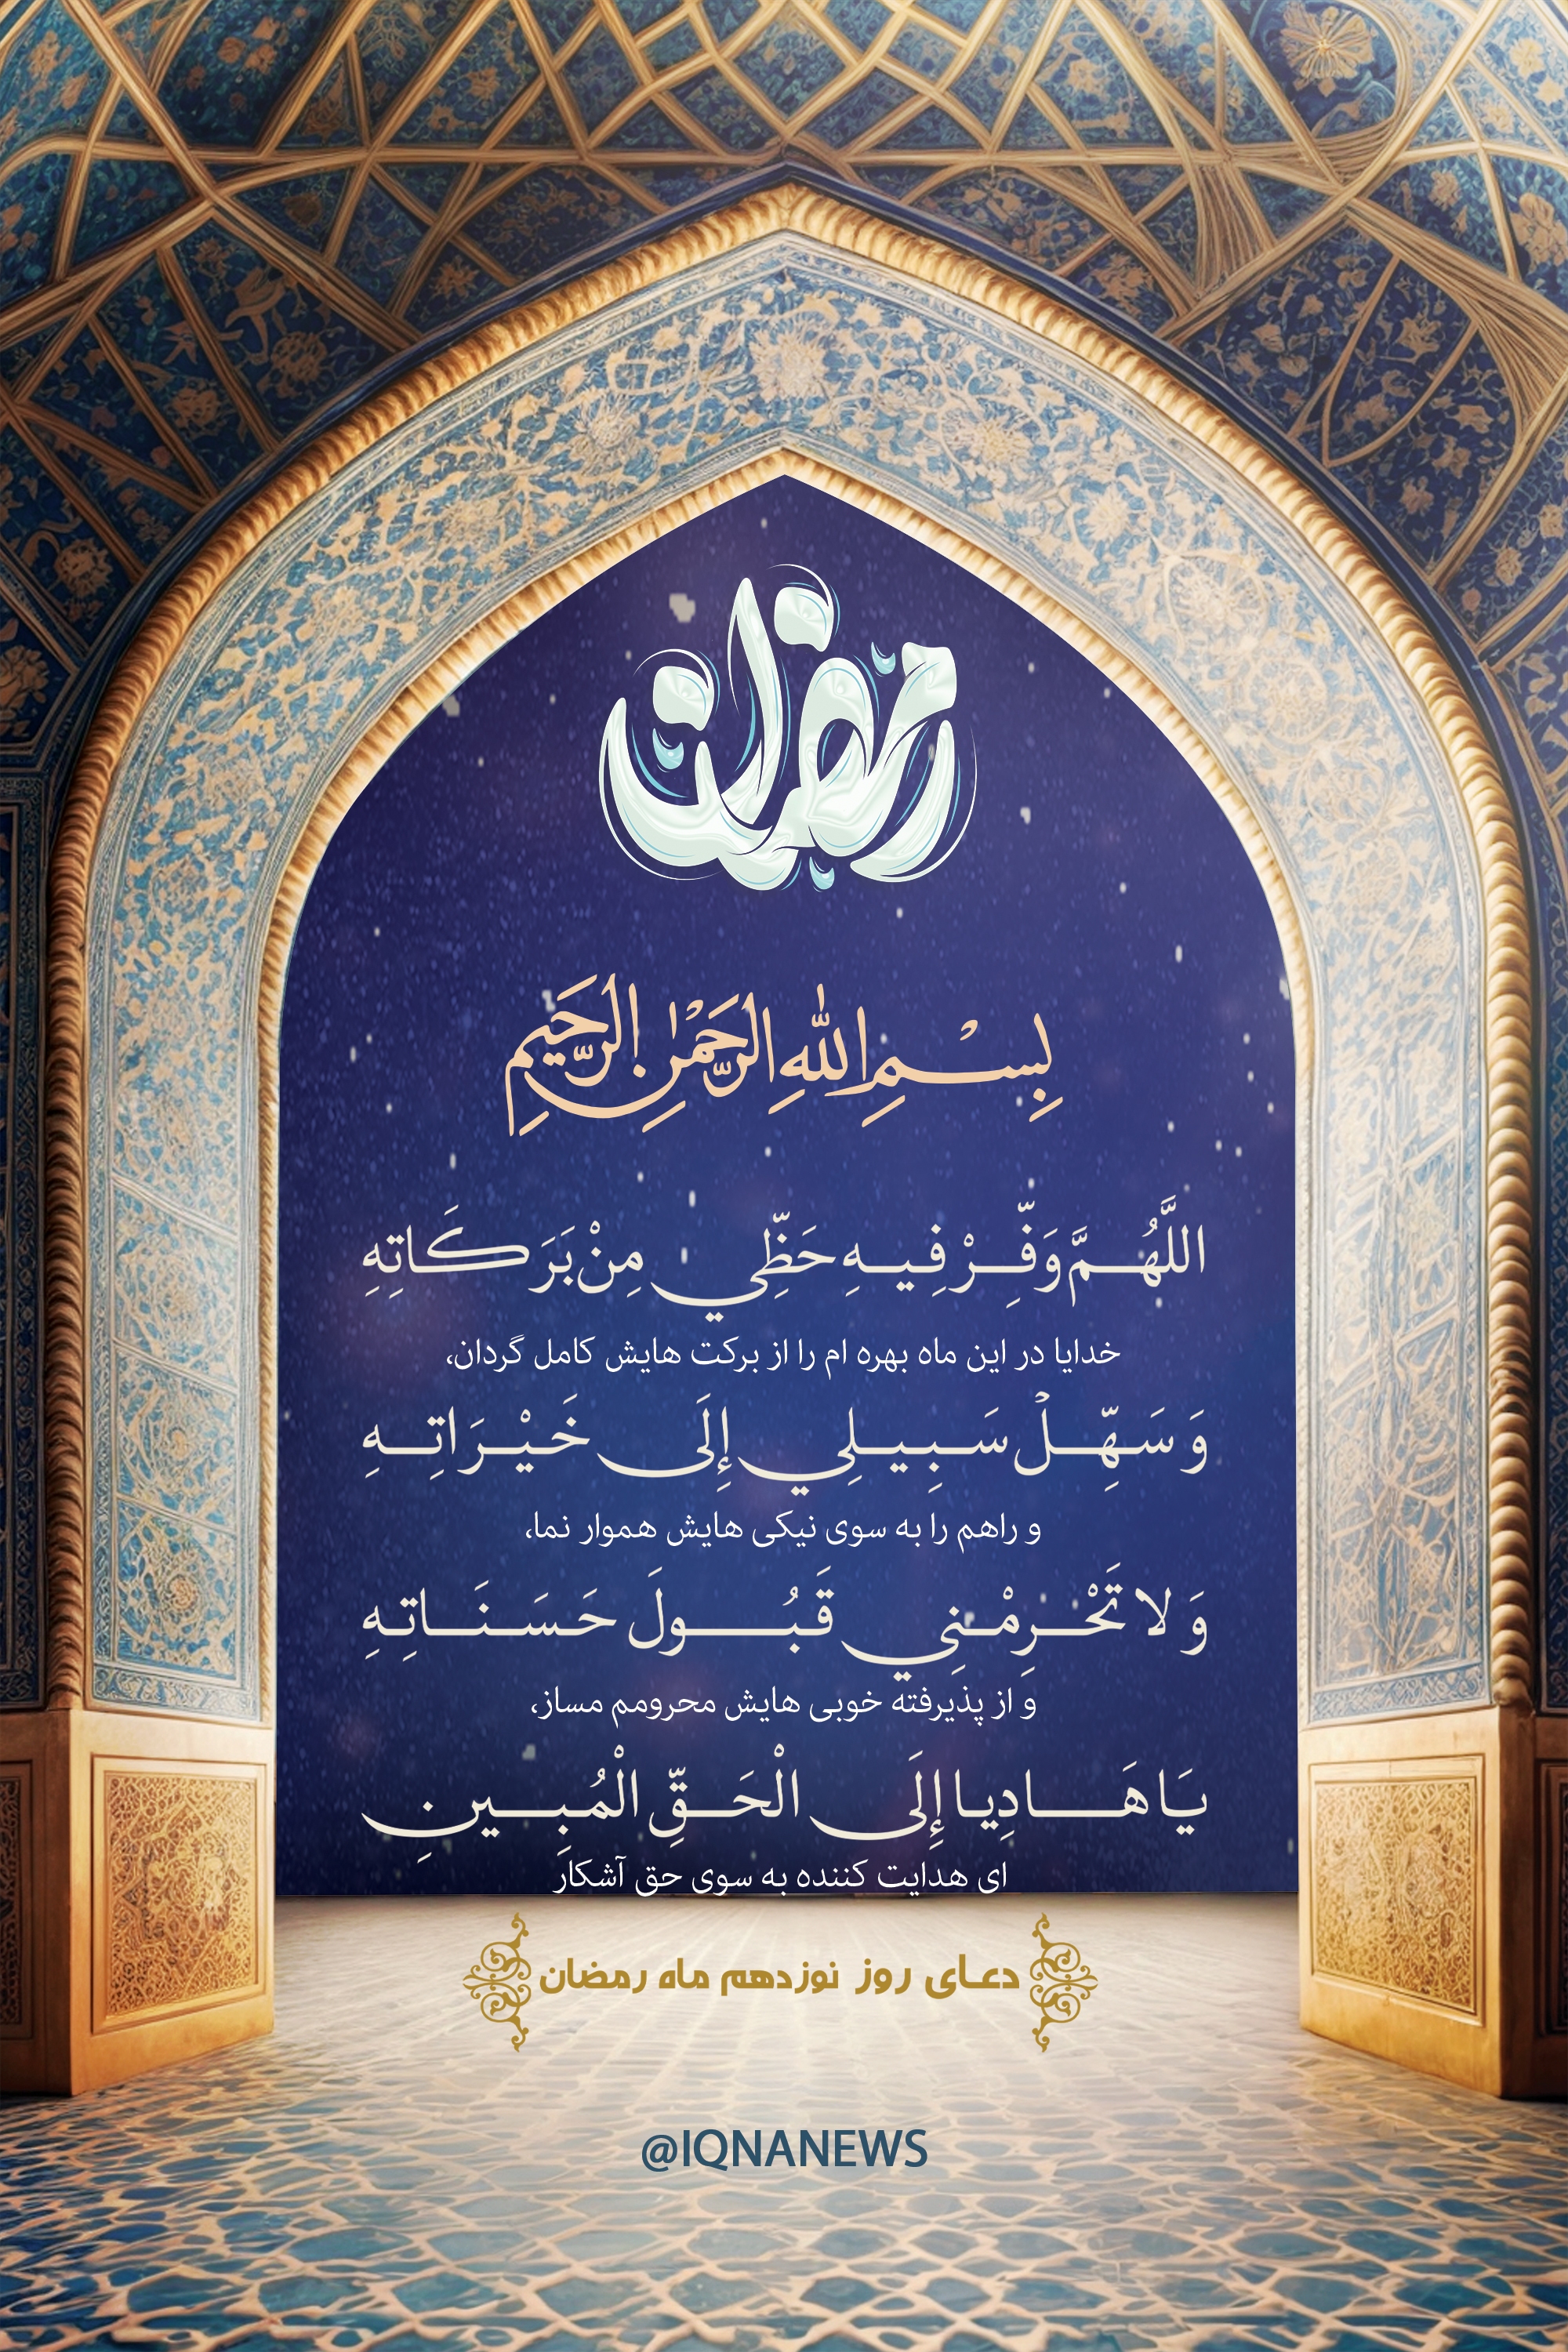 رمضان
بِسْمِ اللهِ الرَّحْمٰنِ الرَّحِيمِ
اللَّهُمَّ وَفِّرْ فِيهِ حَظِّي مِنْ بَرَكَاتِهِ
خدایا در این ماه بهره ام را از برکت هایش کامل گردان،
وَ سَهِّلْ سَبِيلِي إِلَى خَيْرَاتِهِ
و راهم را به سوی نیکی هایش هموار نما،
وَ لا تَحْرِمْنِي قَبُولَ حَسَنَاتِهِ
و از پذیرفته خوبی هایش محرومم مساز،
يَا هَادِيا إِلَى الْحَقِّ الْمُبِينِ
ای هدایت کننده به سوی حق آشکار
دعای روز نوزدهم ماه رمضان
@IQNANEWS